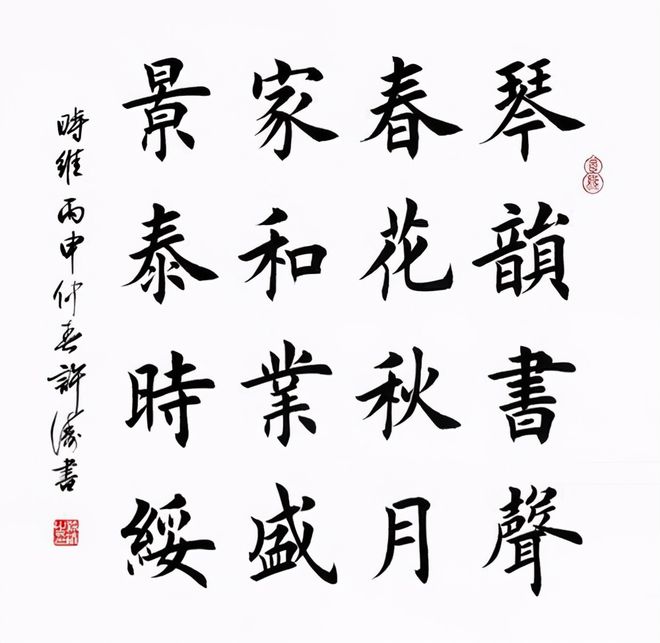 琴韻書聲
春花秋月
家和業盛
景泰時綏
時維丙申仲春許濤書